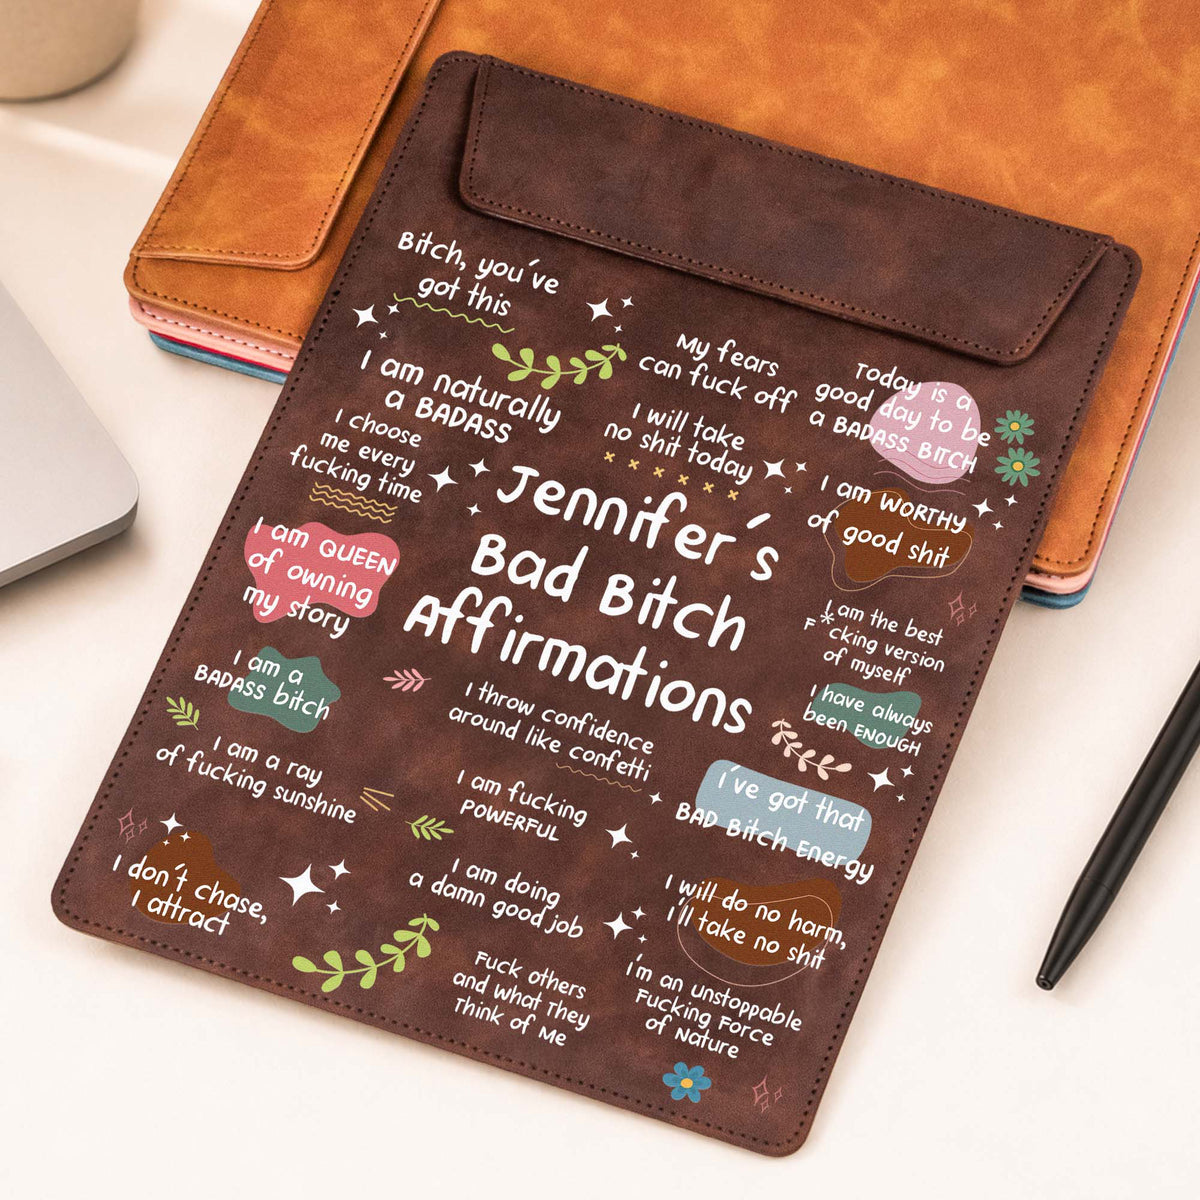 Bitch, you've
got this
My fears
can fuck off
Today is a
good day to be
a BADASS BITCH
I am naturally
a BADASS
I will take
no shit today
I choose
me every
fucking time
I am WORTHY
of good shit
Jennifer's
Bad Bitch
Affirmations
I am QUEEN
of owning
my story
I am the best
F*cking version
of myself
I am a
BADASS bitch
I have always
been ENOUGH
I throw confidence
around like confetti
I am a ray
of fucking sunshine
I am fucking
POWERFUL
I've got that
BAD Bitch Energy
I don't chase,
I attract
I am doing
a damn good job
I will do no harm,
I'll take no shit
Fuck others
and What They
Think of Me
I'm an unstoppable
Fucking Force
of Nature